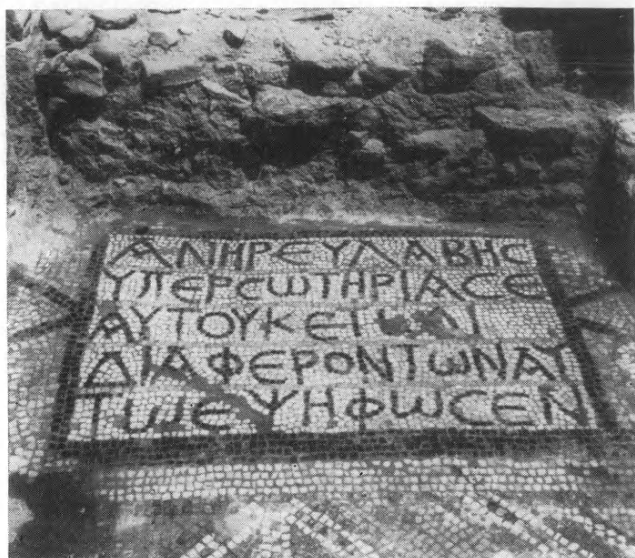 ΑΝΗΡΕΥΛΑΒΗC
ΥΠΕΡCΩΤΗΡΙΑCΕ
ΑΥΤΟΥΚΕ
ΔΙΑΦΕΡΟΝΤΩΝΑΥ
ΤΩΕΨΗΦΩCΕΝ